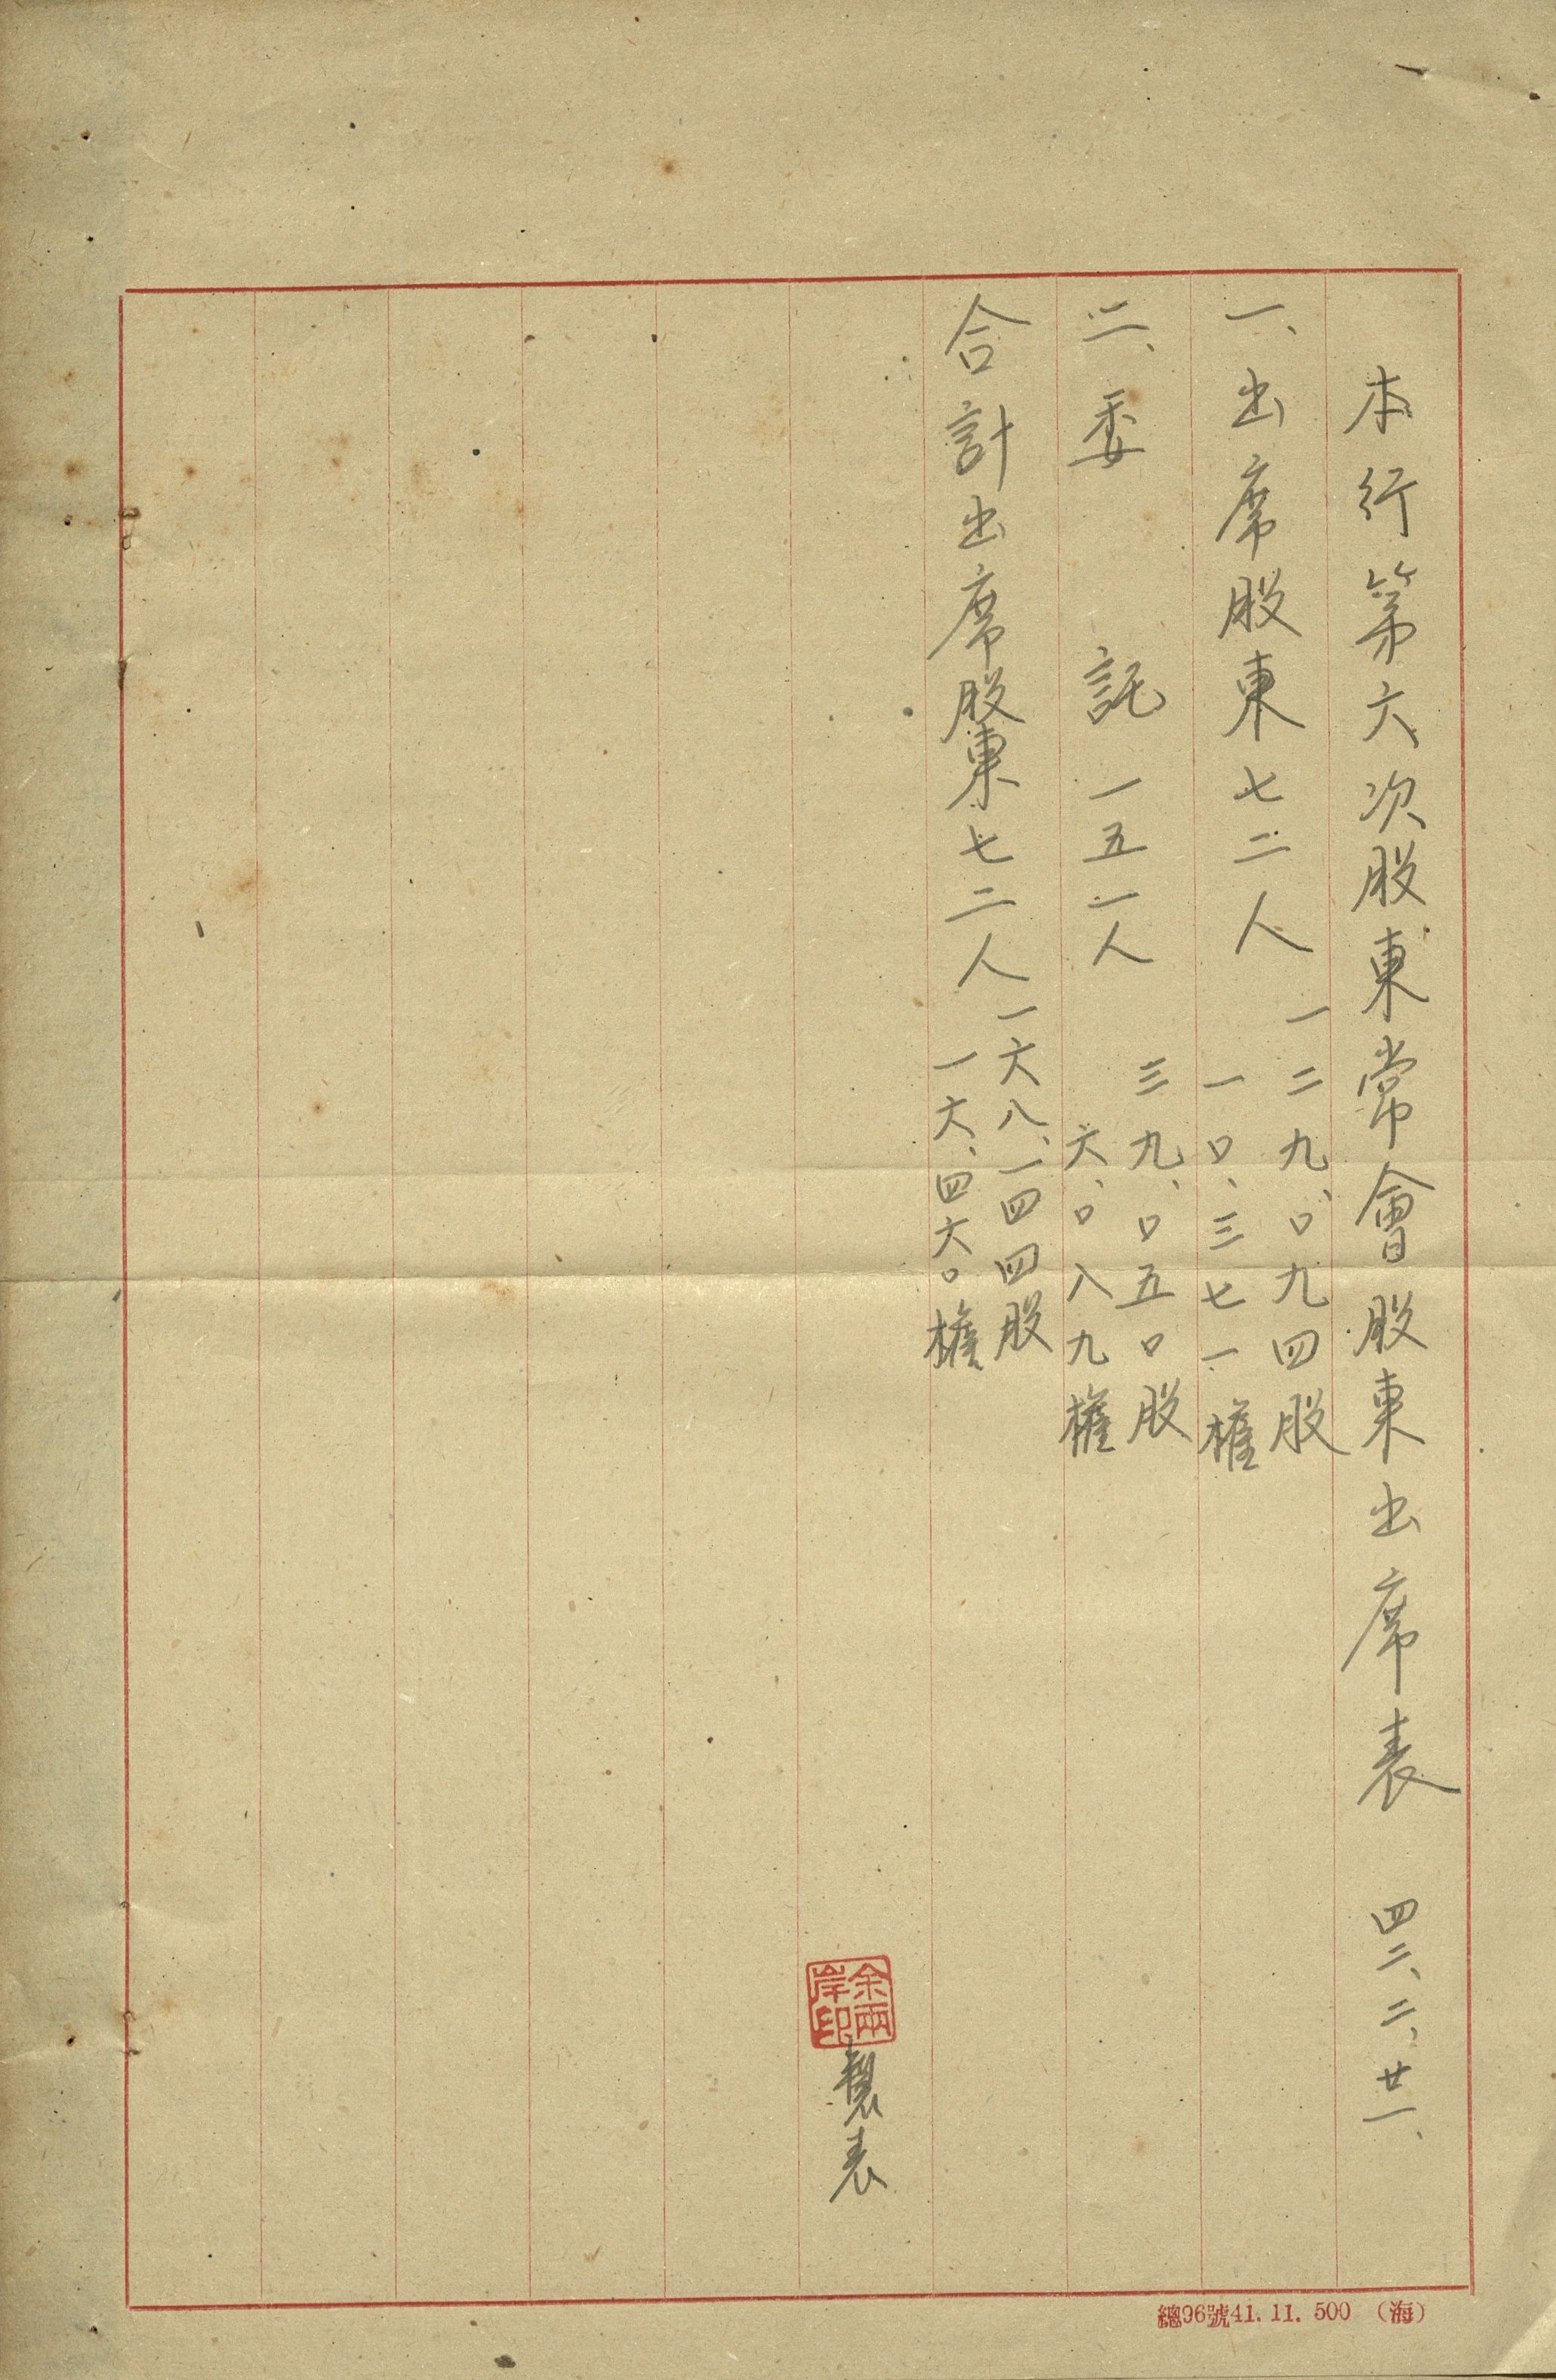 本行第六次股東常會股東出席表 四二、二、廿一、
一、出席股東七二人 一二九、〇九四股
一〇、三七一權
二、委 託 一五一人 三九、〇五〇股
六、〇八九權
合計出席股東七二人 一六八、一四四股
一六、四六〇權
余兩岸印 製表
總96號41.11.500 （海）